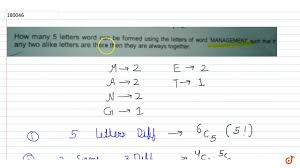 180046
How many 5 letters word can be formed using the letters of word 'MANAGEMENT', such that if
any two alike letters are there then they are always together.
M → 2 E → 2
A → 2 T → 1
N → 2
G → 1
① 5 Letters Diff → 6C5 (5!)
3 Diff → 4C1 5C